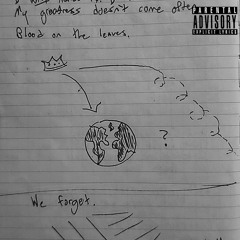 My greatness doesn't come often
Blood on the leaves.
PARENTAL
ADVISORY
EXPLICIT LYRICS
?
We forget.